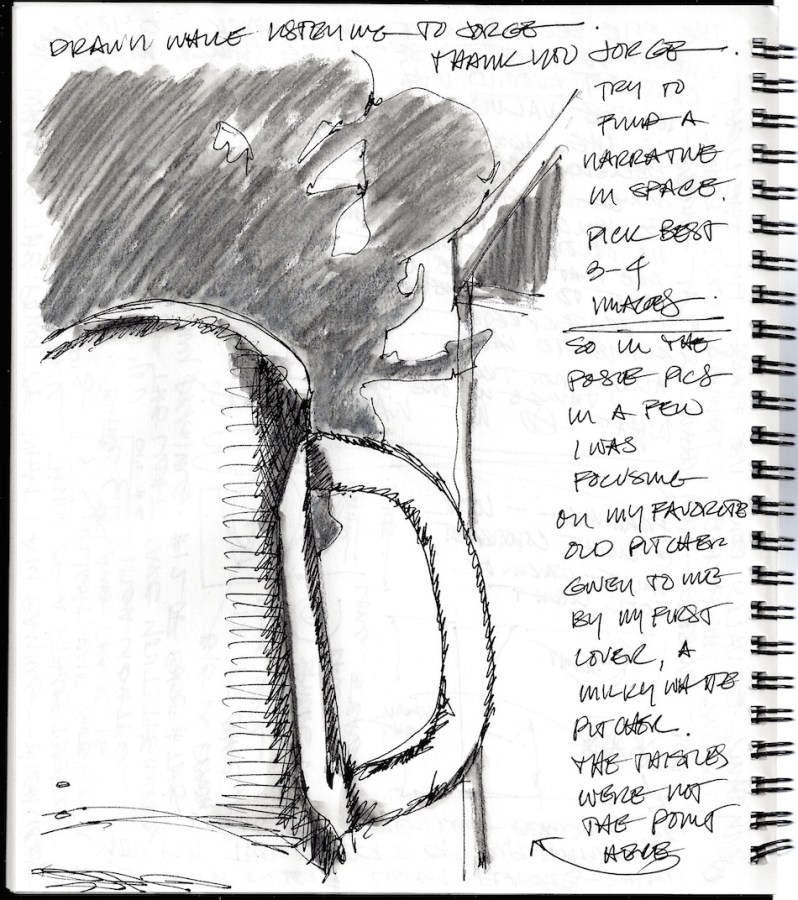 DRAWN WHILE LISTENING TO JORGE
THANK YOU JORGE.
TRY TO
FIND A
NARRATIVE
IN SPACE.
PICK BEST
3-4
IMAGES.
SO IN THE
POSTE PICS
IN A FEW
I WAS
FOCUSING
ON MY FAVORITE
OLD PITCHER
GIVEN TO ME
BY MY FIRST
LOVER, A
MILKY WHITE
PITCHER.
THE THISTLES
WERE NOT
THE POINT
HERE